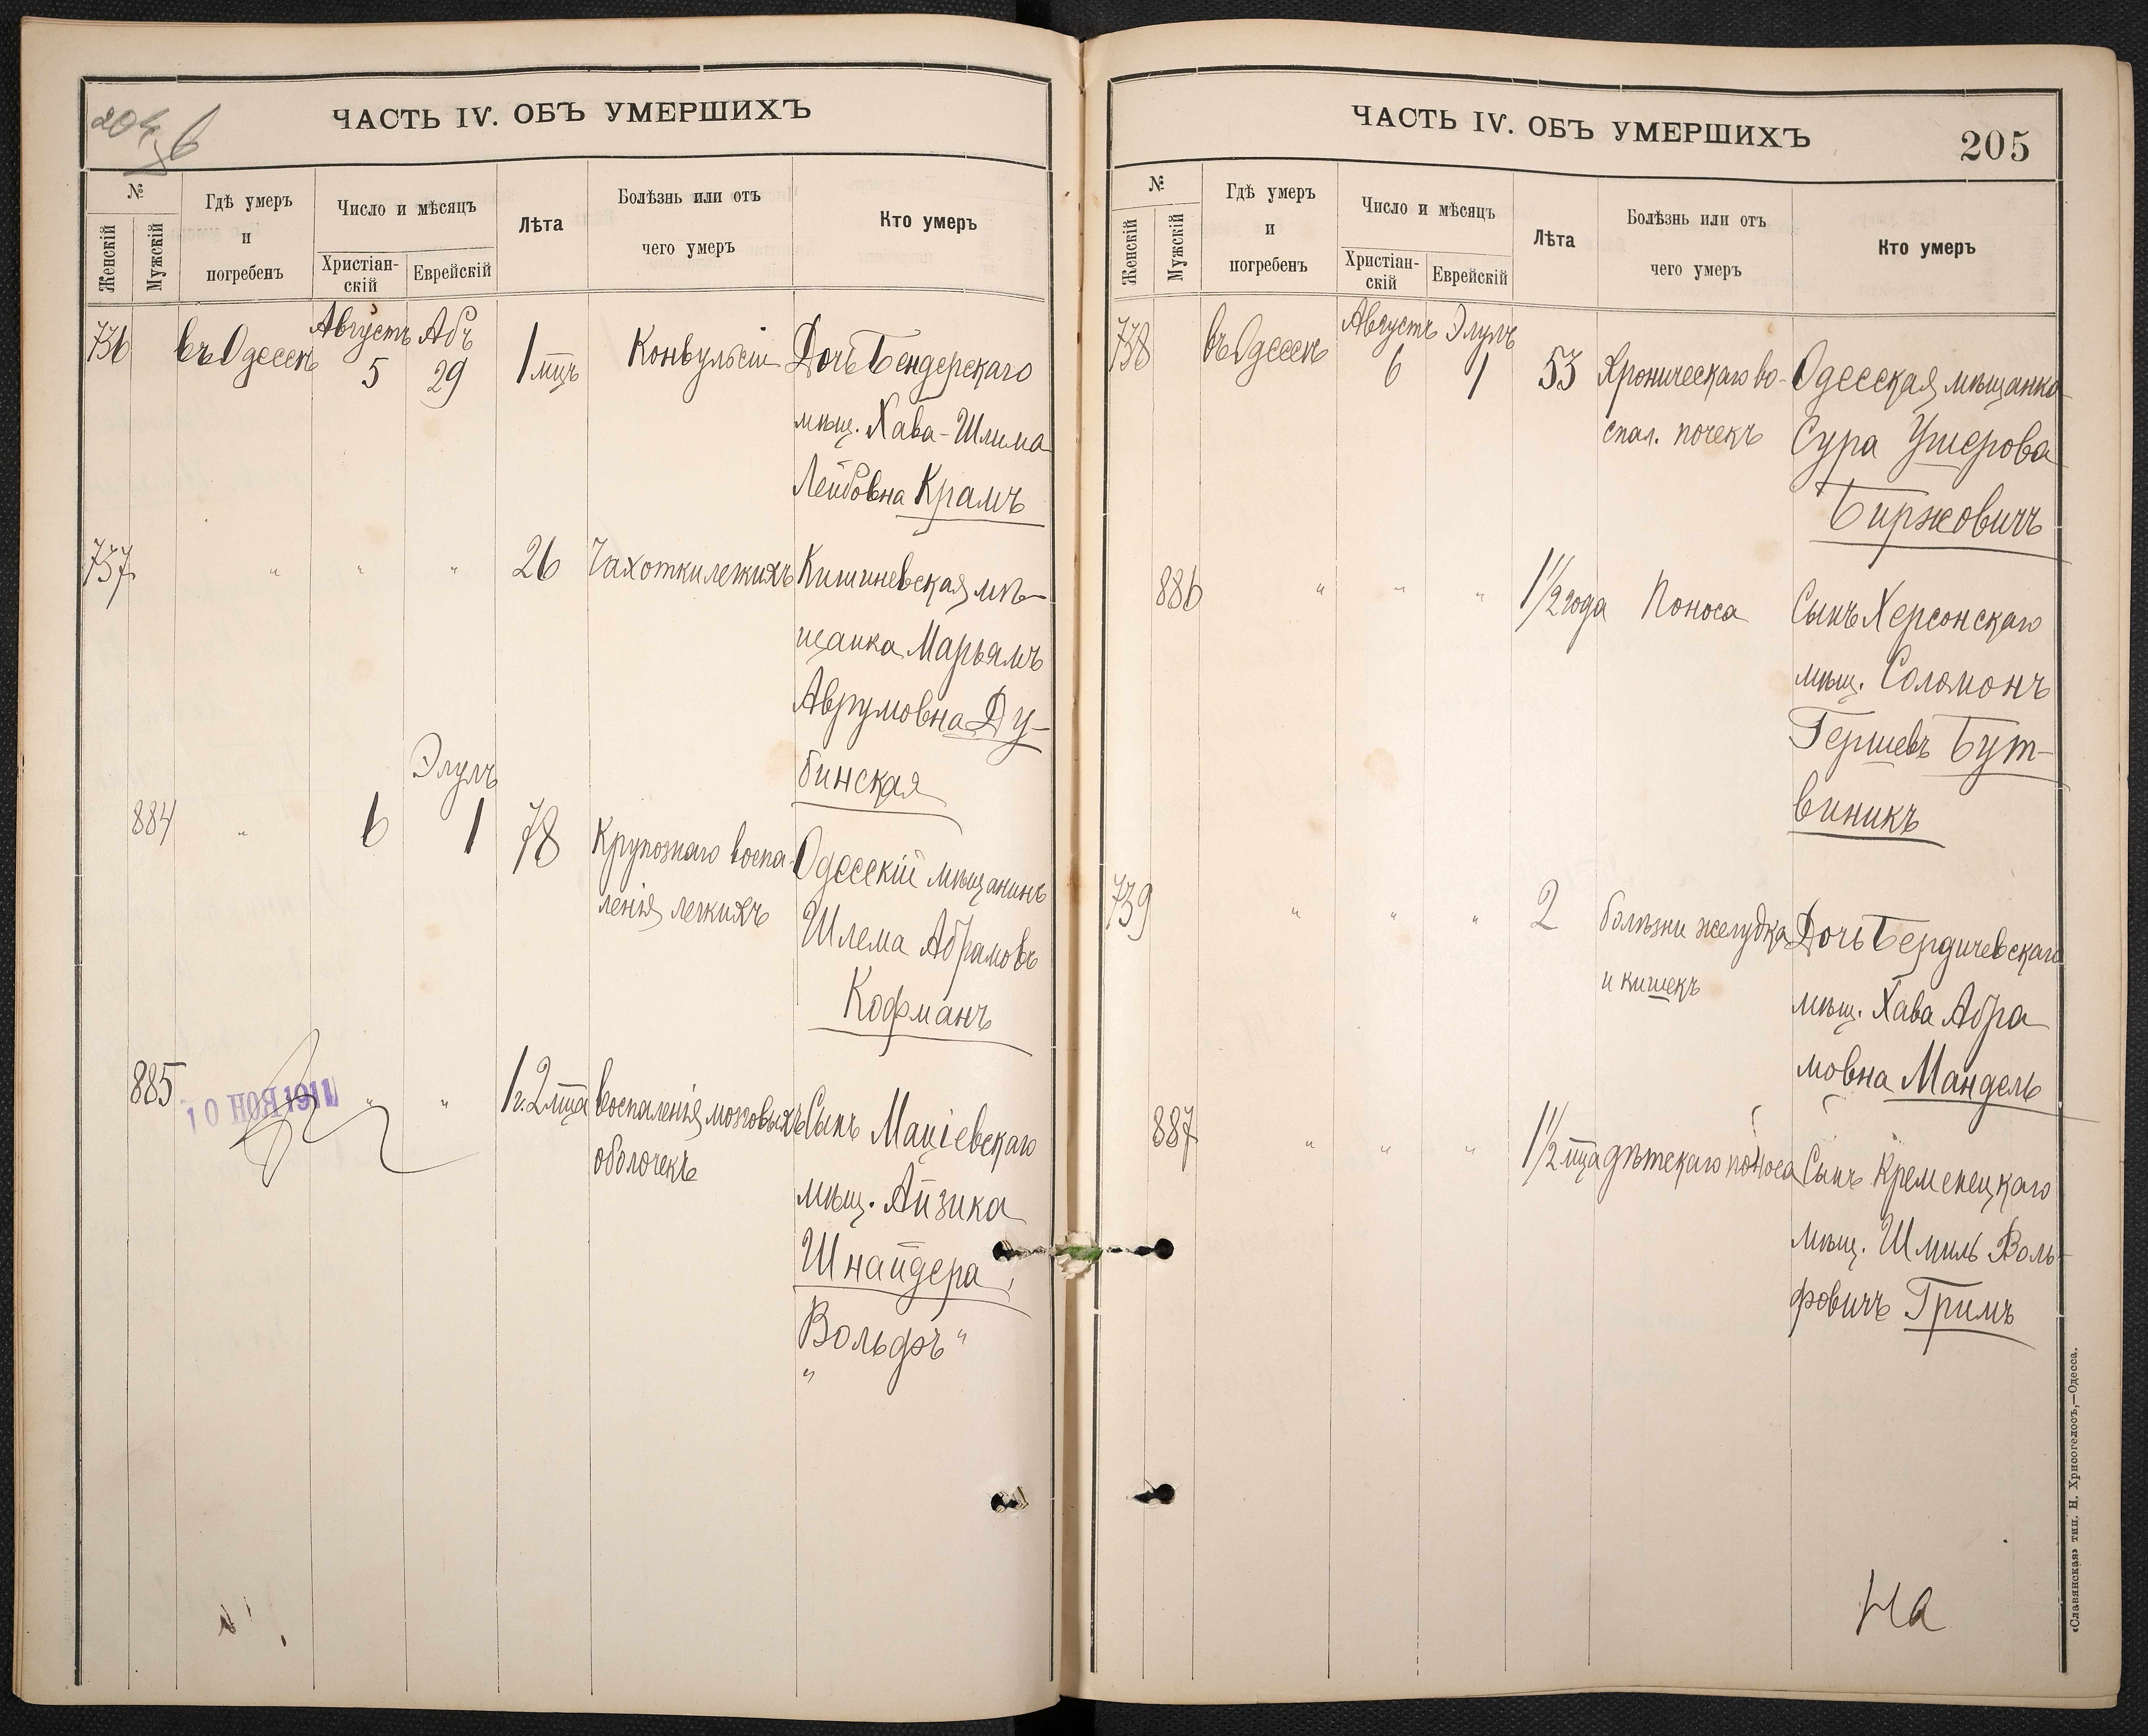 204 б
ЧАСТЬ IV. ОБЪ УМЕРШИХЪ
№
Женскій
Мужскій
Гдѣ умеръ
и
погребенъ
Число и мѣсяцъ
Христіан-
скій
Еврейскій
Лѣта
Болѣзнь или отъ
чего умеръ
Кто умеръ
736 въ Одессѣ Августъ 5 Абъ 29 1 мцъ Конвульсіи Дочь Бендерскаго
мѣщ. Хава-Шлима
Лейбовна Крамъ
737 " " " 26 Чахотки легкихъ Кишиневская мѣ-
щанка Марьямъ
Аврумовна Ду-
бинская
Элулъ
884 " 6 1 78 Крупознаго воспа- Одесскій мѣщанинъ
ленія легкихъ Шлема Абрамовъ
Кофманъ
885 " " 1 г. 2 мца Воспаленія мозговыхъ Сынъ Маціевскаго
оболочекъ мѣщ. Айзика
Шнайдера,
Вольфъ "
"
10 НОЯ 1911
ЧАСТЬ IV. ОБЪ УМЕРШИХЪ
205
№
Женскій
Мужскій
Гдѣ умеръ
и
погребенъ
Число и мѣсяцъ
Христіан-
скій
Еврейскій
Лѣта
Болѣзнь или отъ
чего умеръ
Кто умеръ
738 въ Одессѣ Августъ 6 Элулъ 1 53 Хроническаго во- Одесская мѣщанка
спал. почекъ Сура Ушерова
Биржовичъ
886 " " " 1 1/2 года Поноса Сынъ Херсонскаго
мѣщ. Соломонъ
Гершевъ Бут-
виникъ
739 " " " 2 болѣзни желудка Дочь Бердичевскаго
и кишекъ мѣщ. Хава Абра
мовна Мандель
887 " " " 1 1/2 мца дѣтскаго поноса Сынъ Кременецкаго
мѣщ. Шмиль Воль-
фовичъ Гримъ
На
«Славянская» тип. Н. Хрисогелосъ,—Одесса.